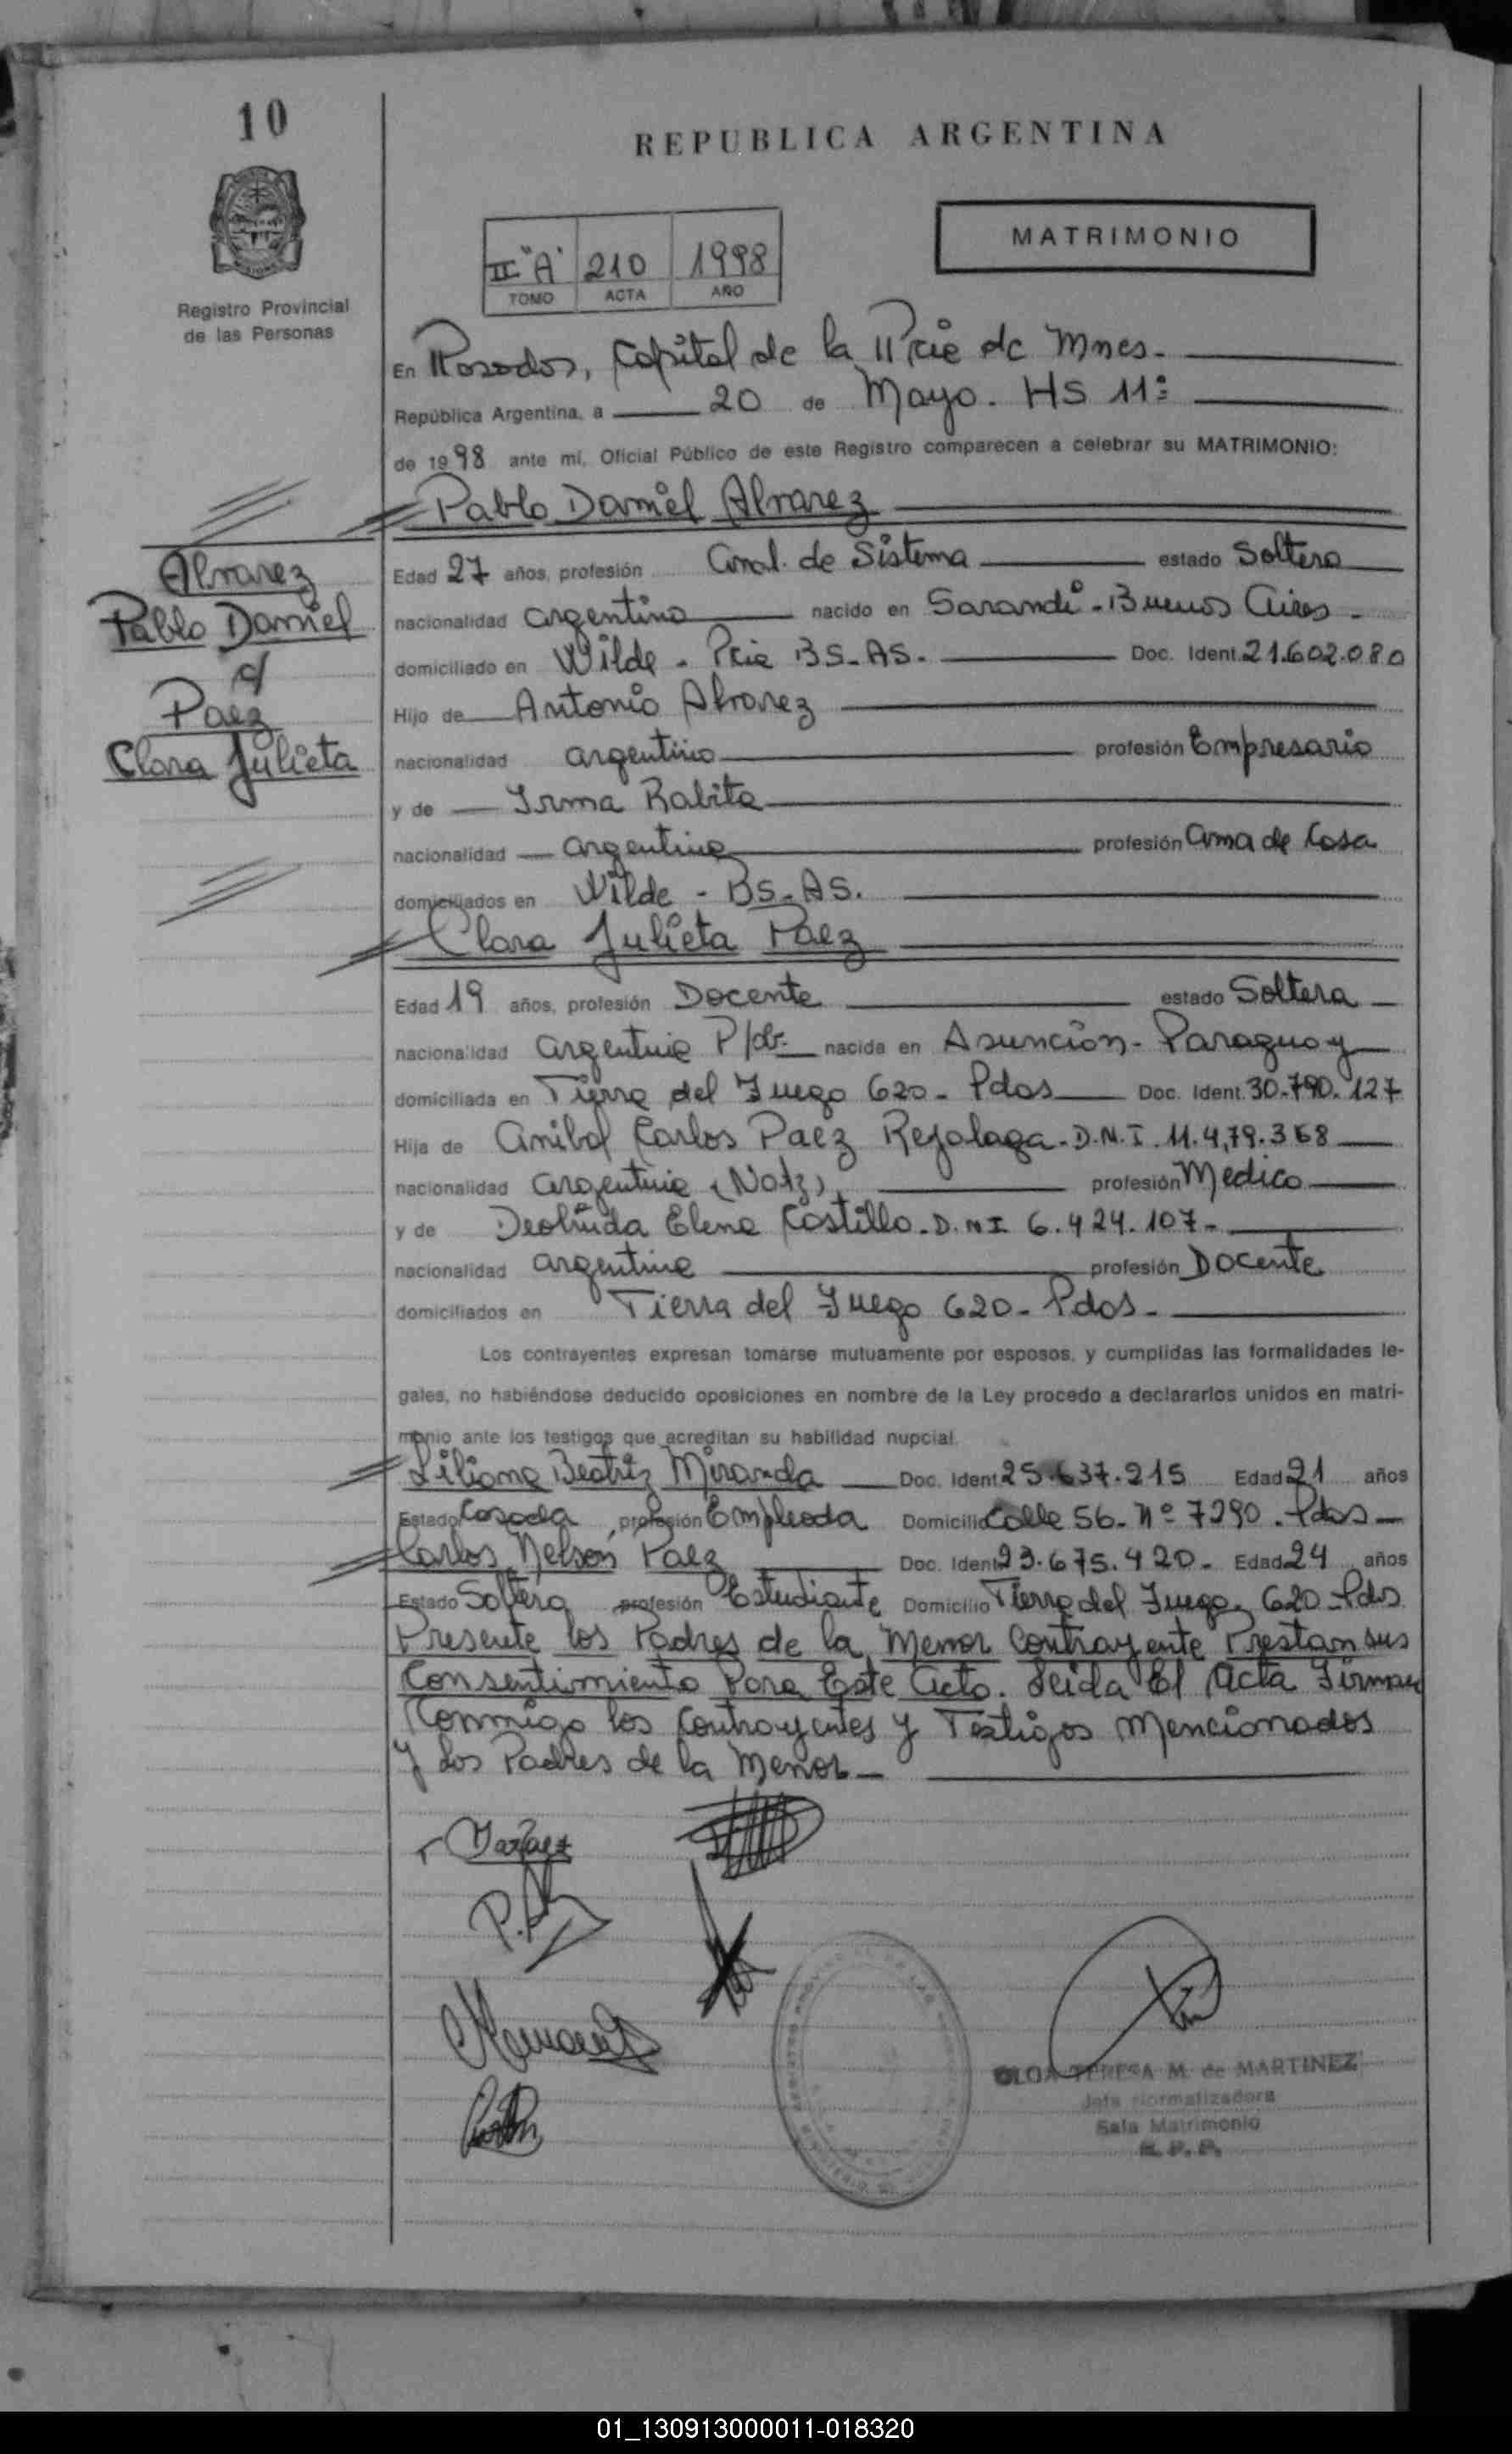 10
REPUBLICA ARGENTINA
MATRIMONIO
II "A" 210 1998
TOMO ACTA AÑO
Registro Provincial
de las Personas
En Posadas, Capital de la Pcia de Mnes.
República Argentina, a 20 de Mayo. HS 11:
de 1998 ante mí, Oficial Público de este Registro comparecen a celebrar su MATRIMONIO:
Pablo Daniel Alvarez
Alvarez
Pablo Daniel
c/
Paez
Clara Julieta
Edad 27 años, profesión Anal. de Sistema estado Soltero
nacionalidad argentino nacido en Sarandí - Buenos Aires -
domiciliado en Wilde - Pcia BS-AS. Doc. Ident. 21.602.080
Hijo de Antonio Alvarez
nacionalidad argentino profesión Empresario
y de Irma Rabita
nacionalidad argentina profesión Ama de Casa
domiciliados en Wilde - BS-AS.
Clara Julieta Paez
Edad 19 años, profesión Docente estado Soltera
nacionalidad argentina P/ nacida en Asunción - Paraguay
domiciliada en Tierra del Fuego 620 - Pdas Doc. Ident. 30.790.127
Hija de Anibal Carlos Paez Rejalaga - D.N.I. 11.479.368
nacionalidad argentina (Natz) profesión Medico
y de Deolinda Elena Castillo - D.N.I 6.424.107-
nacionalidad argentina profesión Docente
domiciliados en Tierra del Fuego 620 - Pdas -
Los contrayentes expresan tomarse mutuamente por esposos, y cumplidas las formalidades le-
gales, no habiéndose deducido oposiciones en nombre de la Ley procedo a declararlos unidos en matri-
monio ante los testigos que acreditan su habilidad nupcial.
Liliana Beatriz Miranda Doc. Ident 25.637.215 Edad 21 años
Estado Casada, profesión Empleada Domicilio Calle 56 - Nº 7290 - Pdas -
Carlos Nelson Paez Doc. Ident 23.675.420 - Edad 24 años
Estado Soltero profesión Estudiante Domicilio Tierra del Fuego 620 - Pdas
Presente los Padres de la Menor Contrayente Prestan sus
Consentimiento Para Este Acto. Leida El Acta Firman
Conmigo los Contrayentes y Testigos Mencionados
y Los Padres de la Menor -
TERESA M. de MARTINEZ
Jefa Normalizadora
Sala Matrimonio
R. P. P.
01_130913000011-018320